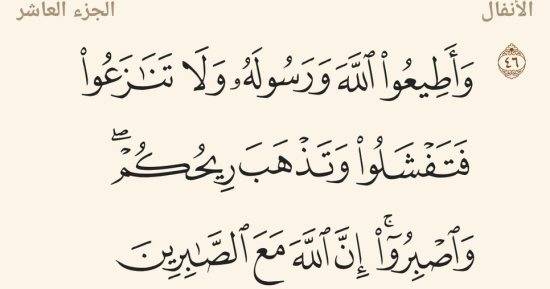 الأنفال الجزء العاشر
٤٦ وَأَطِيعُوا۟ ٱللَّهَ وَرَسُولَهُۥ وَلَا تَنَـٰزَعُوا۟
فَتَفْشَلُوا۟ وَتَذْهَبَ رِيحُكُمْ ۖ
وَٱصْبِرُوٓا۟ ۚ إِنَّ ٱللَّهَ مَعَ ٱلصَّـٰبِرِينَ